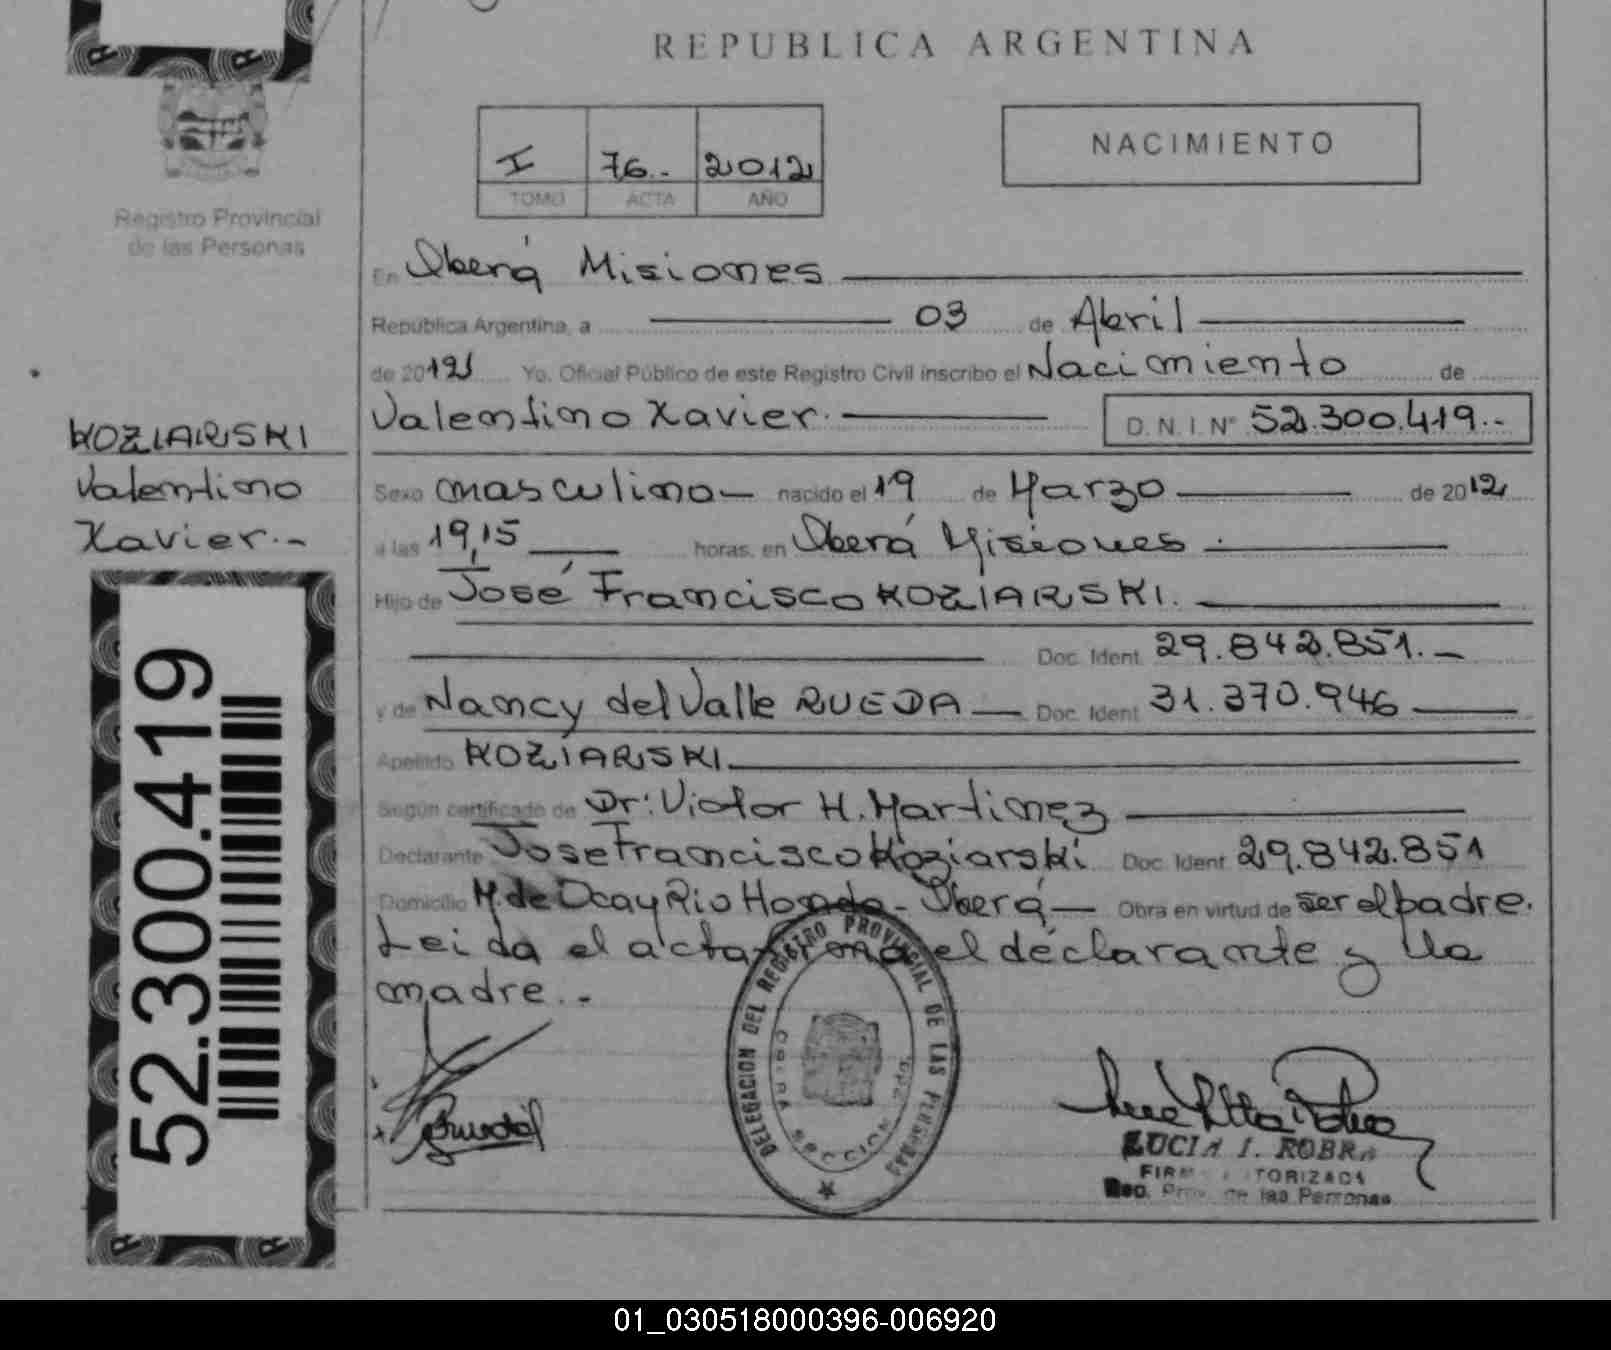 REPUBLICA ARGENTINA
I 76.- 2012
TOMO ACTA AÑO
NACIMIENTO
Registro Provincial
de las Personas
En Oberá Misiones
República Argentina, a 03 de Abril
de 2012 Yo, Oficial Público de este Registro Civil inscribo el Nacimiento de
Valentino Xavier.- D.N.I. Nº 52.300.419.-
KOZIARSKI
Valentino
Xavier.-
Sexo masculino nacido el 19 de Marzo de 2012
a las 19,15 horas, en Oberá Misiones.
Hijo de José Francisco KOZIARSKI.
Doc. Ident. 29.842.851.-
y de Nancy del Valle RUEDA Doc. Ident. 31.370.946
Apellido KOZIARSKI
Según certificado de Dr: Victor H. Martinez
Declarante Jose Francisco Koziarski Doc. Ident. 29.842.851
Domicilio M. de Oca y Rio Hondo - Oberá Obra en virtud de ser el padre.
Leida el acta firma el declarante y la
madre.-
52.300.419
DELEGACION DEL REGISTRO PROVINCIAL DE LAS PERSONAS
OBERA SECCION 2da.
LUCIA I. ROBRA
FIRMA AUTORIZADA
Reg. Prov. de las Personas
01_030518000396-006920